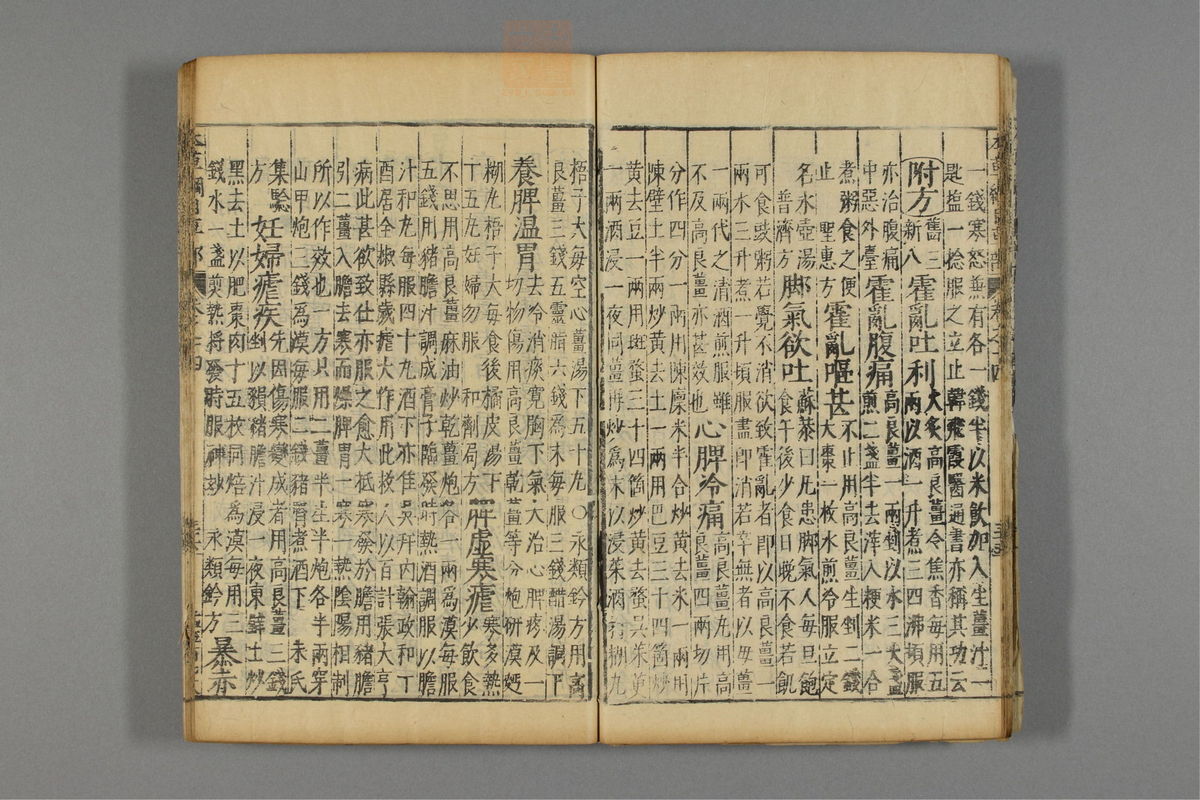 一錢寒怒兼有各一錢半以米飲加入生薑汁一
匙塩一捻服之立止韓飛霞醫通書亦稱其功云
附方舊三新八霍亂吐利火炙高良薑令焦香每用五兩以酒一升煮三四沸頓服
亦治腹痛中惡外臺霍亂腹痛高良薑一兩剉以水三大盞煎二盞半去滓入粳米一合
煮粥食之便止聖惠方霍亂嘔甚不止用高良薑生剉二錢大棗一枚水煎冷服立定
名冰壺湯普濟方脚氣欲吐蘇恭曰凡患脚氣人每旦飽食午後少食日晚不食若飢
可食豉粥若覺不消欲致霍亂者即以高良薑一
兩水三升煮一升頓服盡即消若卒無者以母薑
一兩代之清酒煎服雖不及高良薑亦甚效也心脾冷痛高良薑丸用高良薑四兩切片
分作四分一兩用陳廩米半合炒黃去米一兩用
陳壁土半兩炒黃去土一兩用巴豆三十四箇炒
黃去豆一兩用斑蝥三十四箇炒黃去蝥吳茱萸
一兩酒浸一夜同薑再炒爲末以浸茱酒打糊丸
梧子大每空心薑湯下五十丸○永類鈐方用高
良薑三錢五靈脂六錢爲末每服三錢醋湯調下
養脾溫胃去冷消痰寬胸下氣大治心脾疼及一切冷物傷用高良薑乾薑等分炮研漠麪
糊丸梧子大每食後橘皮湯下十五丸妊婦勿服和劑局方脾虛寒瘧寒多熱少飲食
不思用高良薑麻油炒乾薑炮各一兩爲漠每服
五錢用猪膽汁調成膏子臨發時熱酒調服以膽
汁和丸每服四十丸酒下亦佳吳幵內翰政和丁
酉居全椒縣歲瘧大作用此救人以百計張大亨
病此甚欲致仕亦服之愈大抵寒發於膽用猪膽
引二薑入膽去寒而燥脾胃一寒一熱陰陽相制
所以作效也一方只用二薑半生半炮各半兩穿
山甲炮三錢爲漠每服二錢猪腎煮酒下朱氏
集驗方妊婦瘧疾先因傷寒變成者用高良薑三錢剉以豶猪膽汁浸一夜東壁土炒
黑去土以肥棗肉十五枚同焙為漠每用三
錢水一盞煎熱將發時服神妙永類鈐方暴赤